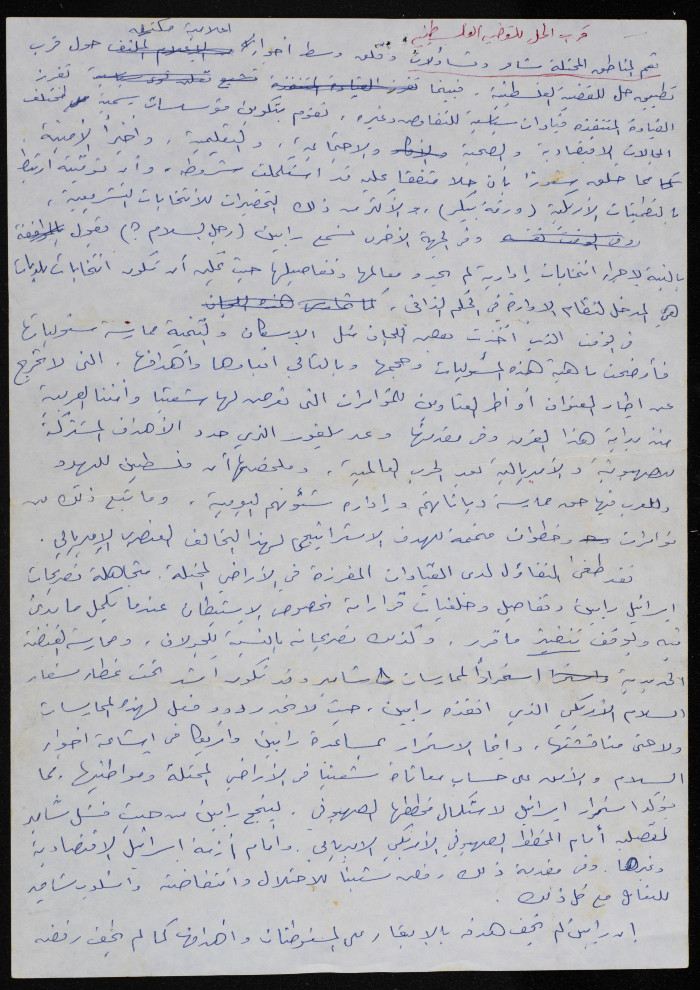 قرب الحل للقضية الفلسطينية
اعلامية مكثفة
تعم المناطق المحتلة مشاعر وتساؤلات وقلق وسط اجواء حول قرب
تطبيق حل للقضية الفلسطينية، فبينما تفرز
القيادة المتنفذه قيادات سياسية للتفاوض وغيره، تقوم بتكوين مؤسسات رسمية لمختلف
المجالات الاقتصادية والصحية والاجتماعية، والتعليمية، واخيراً الأمنية.
مما خلق شعوراً بأن حلا متفقا عليه قد استكملت شروطه، وأن توقيته ارتبط
بالتطمينات الأمريكية (ورقة بيكر)، والأكثر من ذلك التحضيرات للانتخابات التشريعية،
وفي الجهة الأخرى نسمع رابين (رجل السلام؟) يقول
بالنية لإجراء انتخابات إدارية لم يحدد معالمها وتفاصيلها حيث عليه أن تكون انتخابات بلديات
هي المدخل لنظام الادارة في الحكم الذاتي.
في الوقت الذي أخذت بعض اللجان مثل الاسكان والتنمية ممارسة مسئولياتها
فأوضحت ماهية هذه المسئوليات وحجمها وبالتالي ابعادها وأهدافها. التي لا تخرج
عن اطار العنوان أو أطر العناوين للمؤامرات التي تعرض لها شعبنا وأمتنا العربية
منذ بداية هذا القرن وفي مقدمتها وعد بلفور الذي حدد الأهداف المشتركة
للصهيونية والأمبريالية بعد الحرب العالمية، وملخصها أن فلسطين لليهود
وللعرب فيها حق ممارسة دياناتهم وإدارة شئونهم اليومية، وما تبع ذلك من
مؤامرات وخطوات متممة للهدف الاستراتيجي لهذا التحالف العنصري الإمبريالي.
لقد طغى التفاؤل لدى القيادات المفرزة في الأراضي المحتلة. متجاهلة تصريحات
اسرائيل رابين وتفاصيل وخلفيات قراراته بخصوص الاستيطان عندما يكمل ما بدئ
فيه ويوقف تنفيذ ما قرر، وكذلك تصريحاته بالنسبة للجولان، وممارسة القبضة
الحديدية استمراراً لممارسات شامير وقد تكون أشد تحت غطاء ستار
السلام الأمريكي الذي اتخذه رابين، حيث لا نجد ردود فعل لهذه الممارسات
ولا حتى مناقشتها، وانما الاستمرار بمساعدة رابين وأمريكا في إشاعة اجواء
السلام والأمن على حساب معاناة شعبنا في الأراضي المحتلة ومواطنيها، مما
يؤكد استمرار اسرائيل لاستكمال مخططها الصهيوني. لينجح رابين من حيث فشل شامير
أمام المخطط الصهيوني الأمريكي الامبريالي. وأمام أزمة إسرائيل الاقتصادية
وغيرها. وفي مقدمة ذلك رفض شعبنا للاحتلال وانتفاضته وأسلوب شامير
للتعامل مع كل ذلك.
إن رابين لم يخف هدفه بالإبقاء على المستوطنات وأهدافها كما لم يخف رفضه